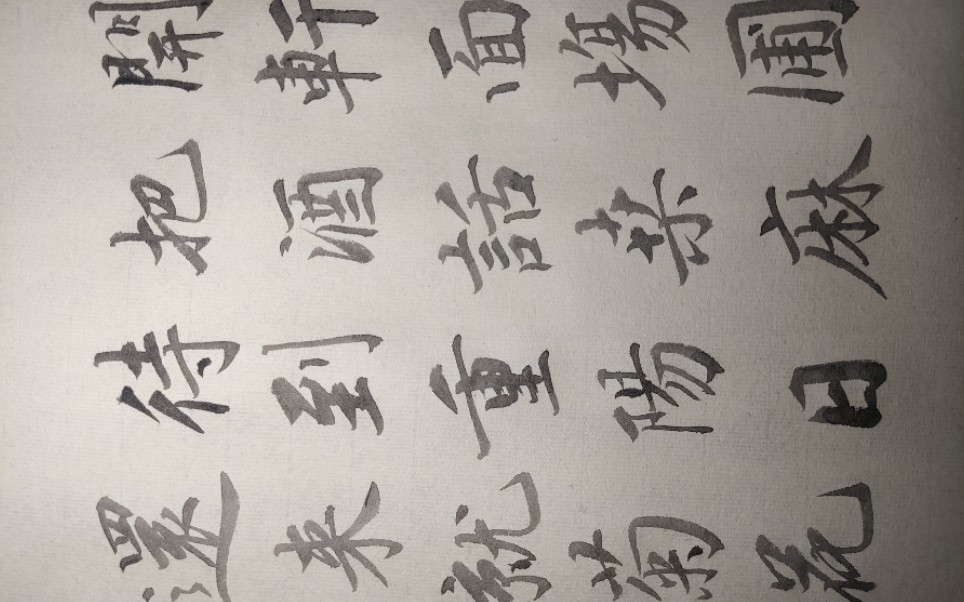 開軒面場圃
把酒話桑麻
待到重陽日
還來就菊花